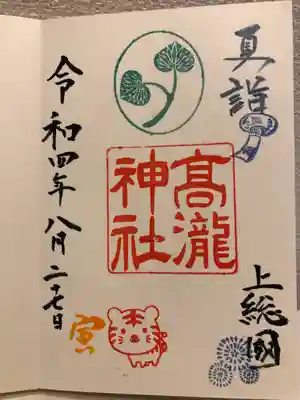 夏詣
上総國
高瀧
神社
寅
令和四年八月二十七日